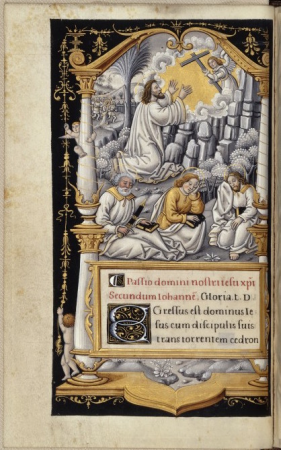 Passio domini nostri iesu xpi
Secundum Iohannē. Gloria. t. D
Egressus est dominus Ie
sus cum discipulis suis
trans torrentem cedron